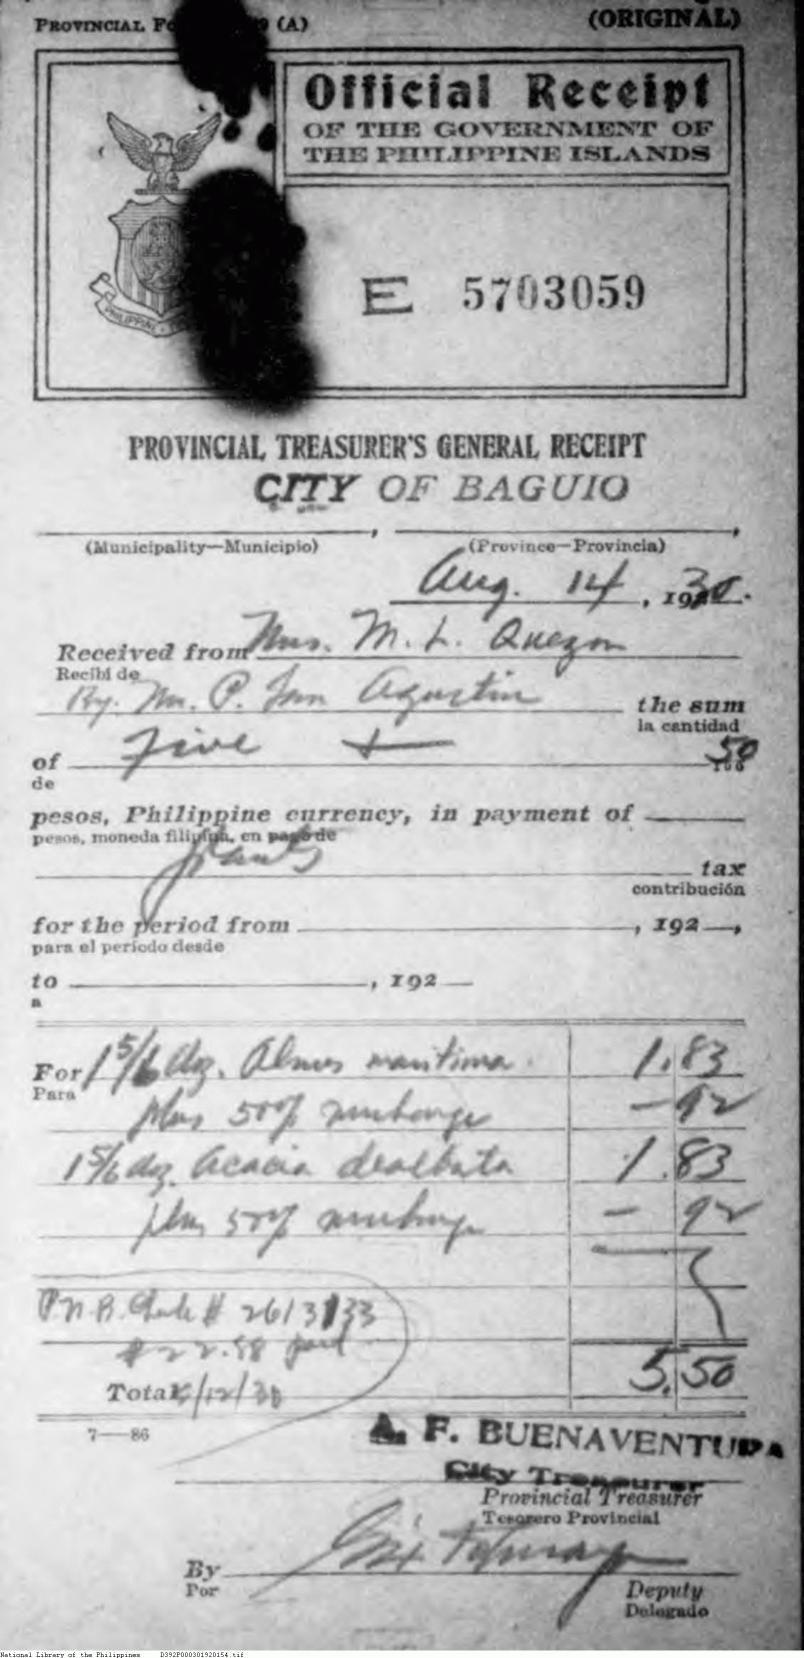 PROVINCIAL (A)
(ORIGINAL)
Official Receipt
OF THE GOVERNMENT OF
THE PHILIPPINE ISLANDS
E 5703059
PHILIPPINE
PROVINCIAL TREASURER'S GENERAL RECEIPT
CITY OF BAGUIO
(Municipality—Municipio) , (Province—Provincia) ,
Aug. 14, 1930.
Received from Mrs. M. L. Quezon
Recibí de
By. Mr. P. San Agustin the sum
la cantidad
of Five + 50/100
de
pesos, Philippine currency, in payment of
pesos, moneda filipina, en pago de
plants tax
contribución
for the period from , 192 ,
para el período desde
to , 192
a
For 1 5/6 doz. Alnus maritima 1.83
Para
plus 50% surcharge — 92
1 5/6 doz. Acacia dealbata 1.83
plus 50% surcharge — 92
P.N.B. Check # 2613133
22.88 paid
Total 5.50
/12/30
7—86
A. F. BUENAVENTURA
City Treasurer
Provincial Treasurer
Tesorero Provincial
By
Por
Deputy
Delegado
National Library of the Philippines D392P000301920154.tif